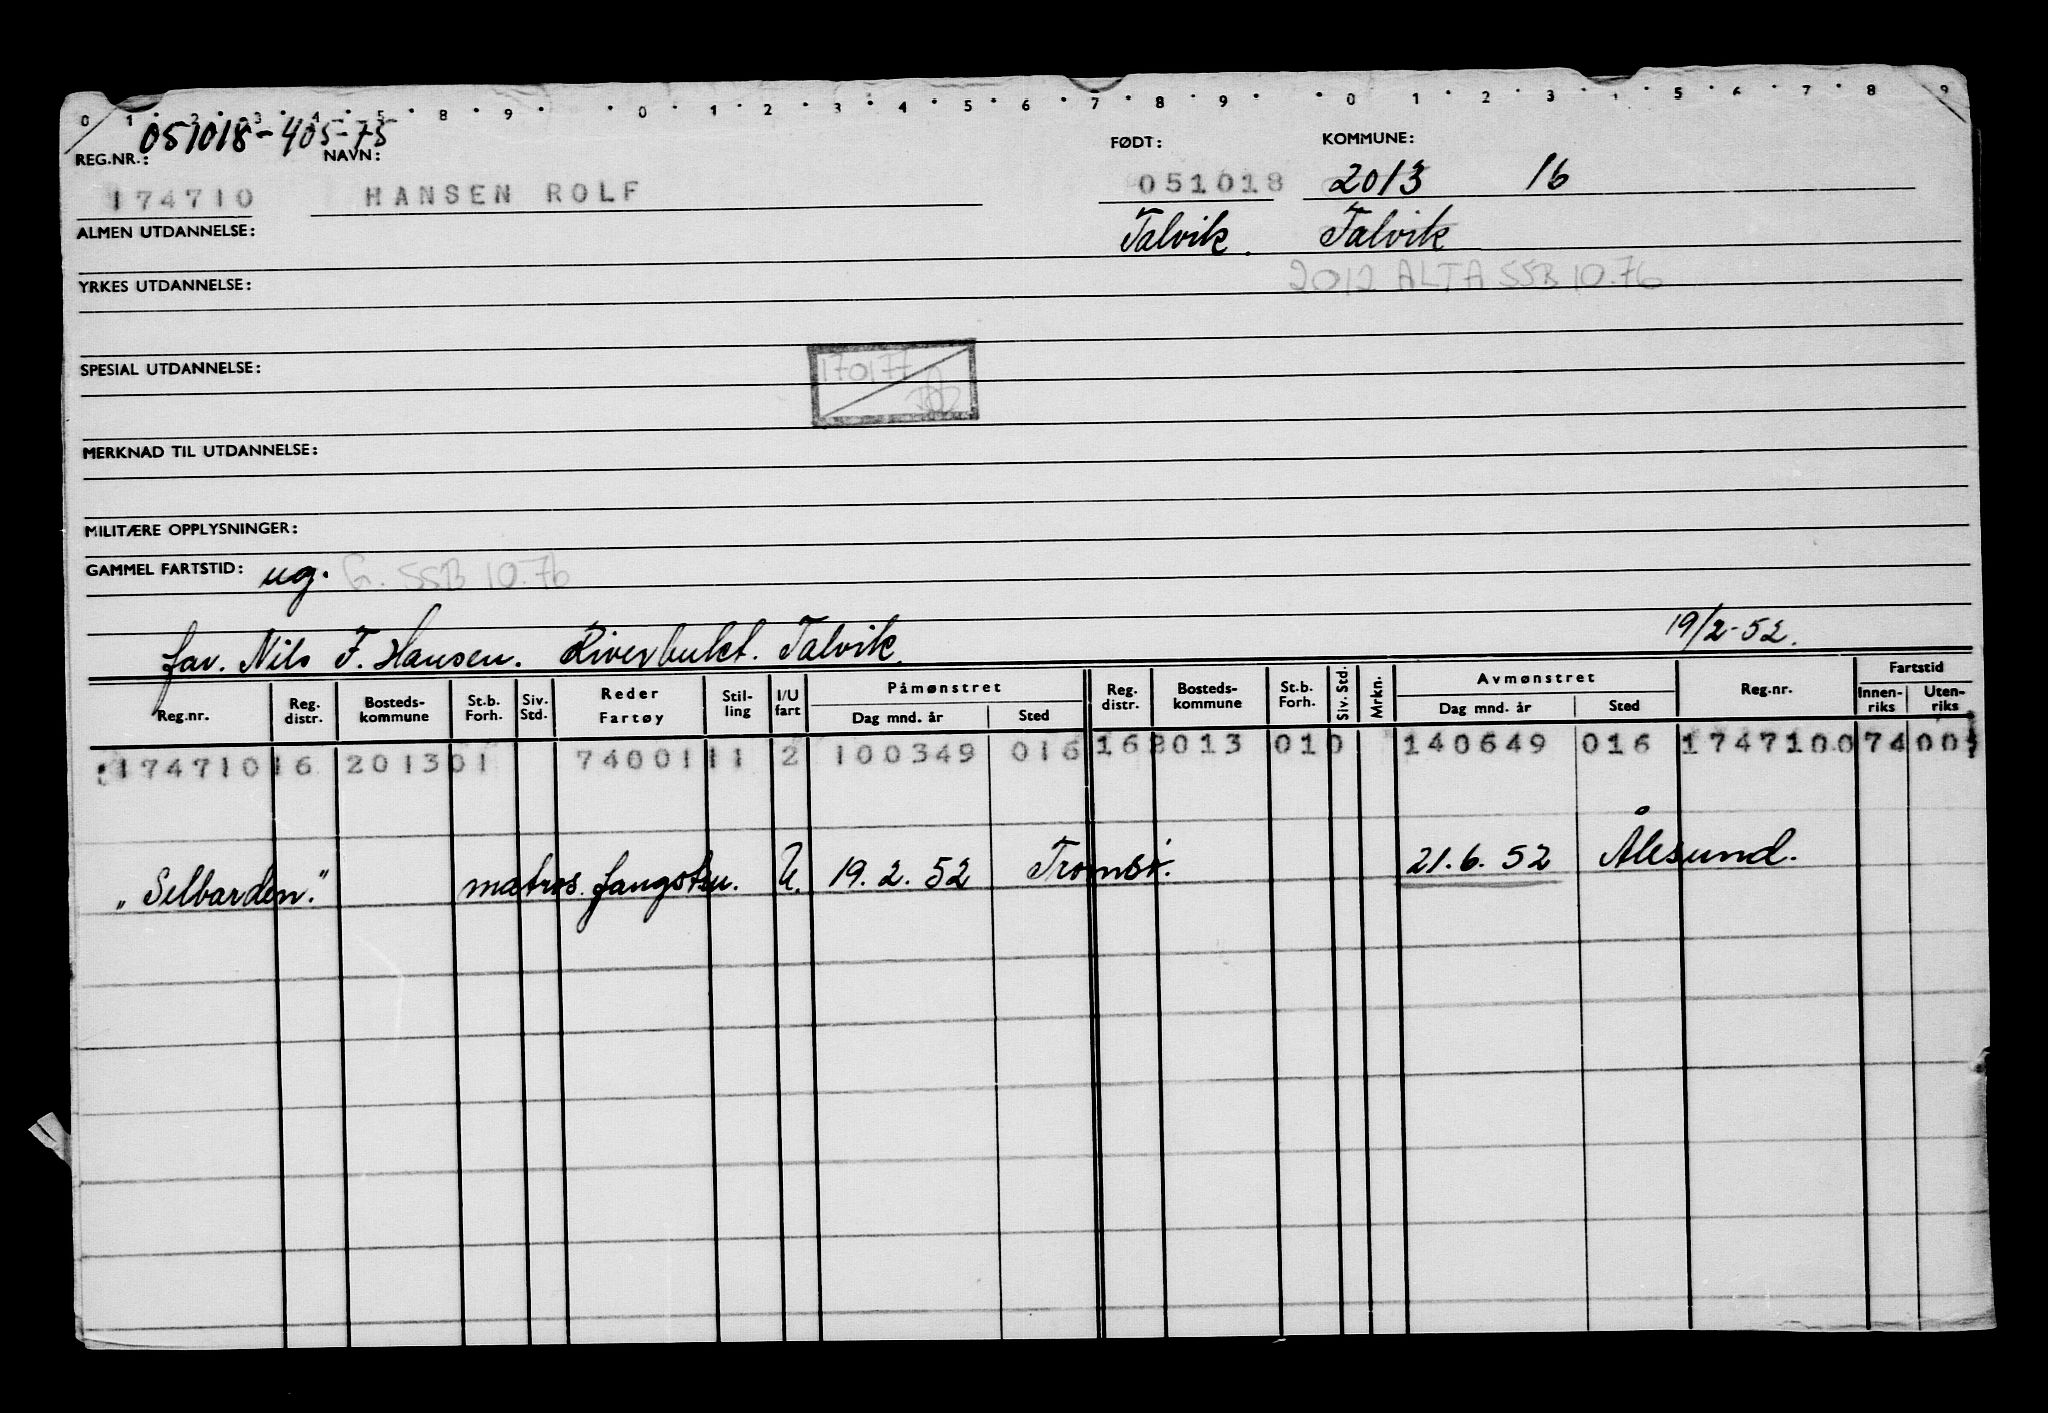 0 1 2 3 4 5 8 9 0 1 2 3 4 5 6 7 8 9 0 1 2 3 4 5 6 7 8 9
051018-405-75
REG.NR.: NAVN: FØDT: KOMMUNE:
174710 HANSEN ROLF 051018 2013 16
ALMEN UTDANNELSE: Talvik. Talvik
YRKES UTDANNELSE: 2012 ALTA SSB 10.76
SPESIAL UTDANNELSE: 170177
MERKNAD TIL UTDANNELSE:
MILITÆRE OPPLYSNINGER:
GAMMEL FARTSTID: ug. G. SSB 10.76
far. Nils F. Hansen. Riverbukt. Talvik. 19/2-52.
Reg.nr. Reg. distr. Bosteds-kommune St.b. Forh. Siv. Std. Reder Fartøy Stil-ling I/U fart Påmønstret Dag mnd. år Sted Reg. distr. Bosteds-kommune St.b. Forh. Siv. Std. Mrkn. Avmønstret Dag mnd. år Sted Reg.nr. Fartstid Innen-riks Uten-riks
174710 16 2013 01 74001 11 2 100349 016 16 2013 010 140649 016 174710 0 74 00
"Selbarden." matros. fangstsu. U. 19.2.52 Tromsø. 21.6.52 Ålesund.